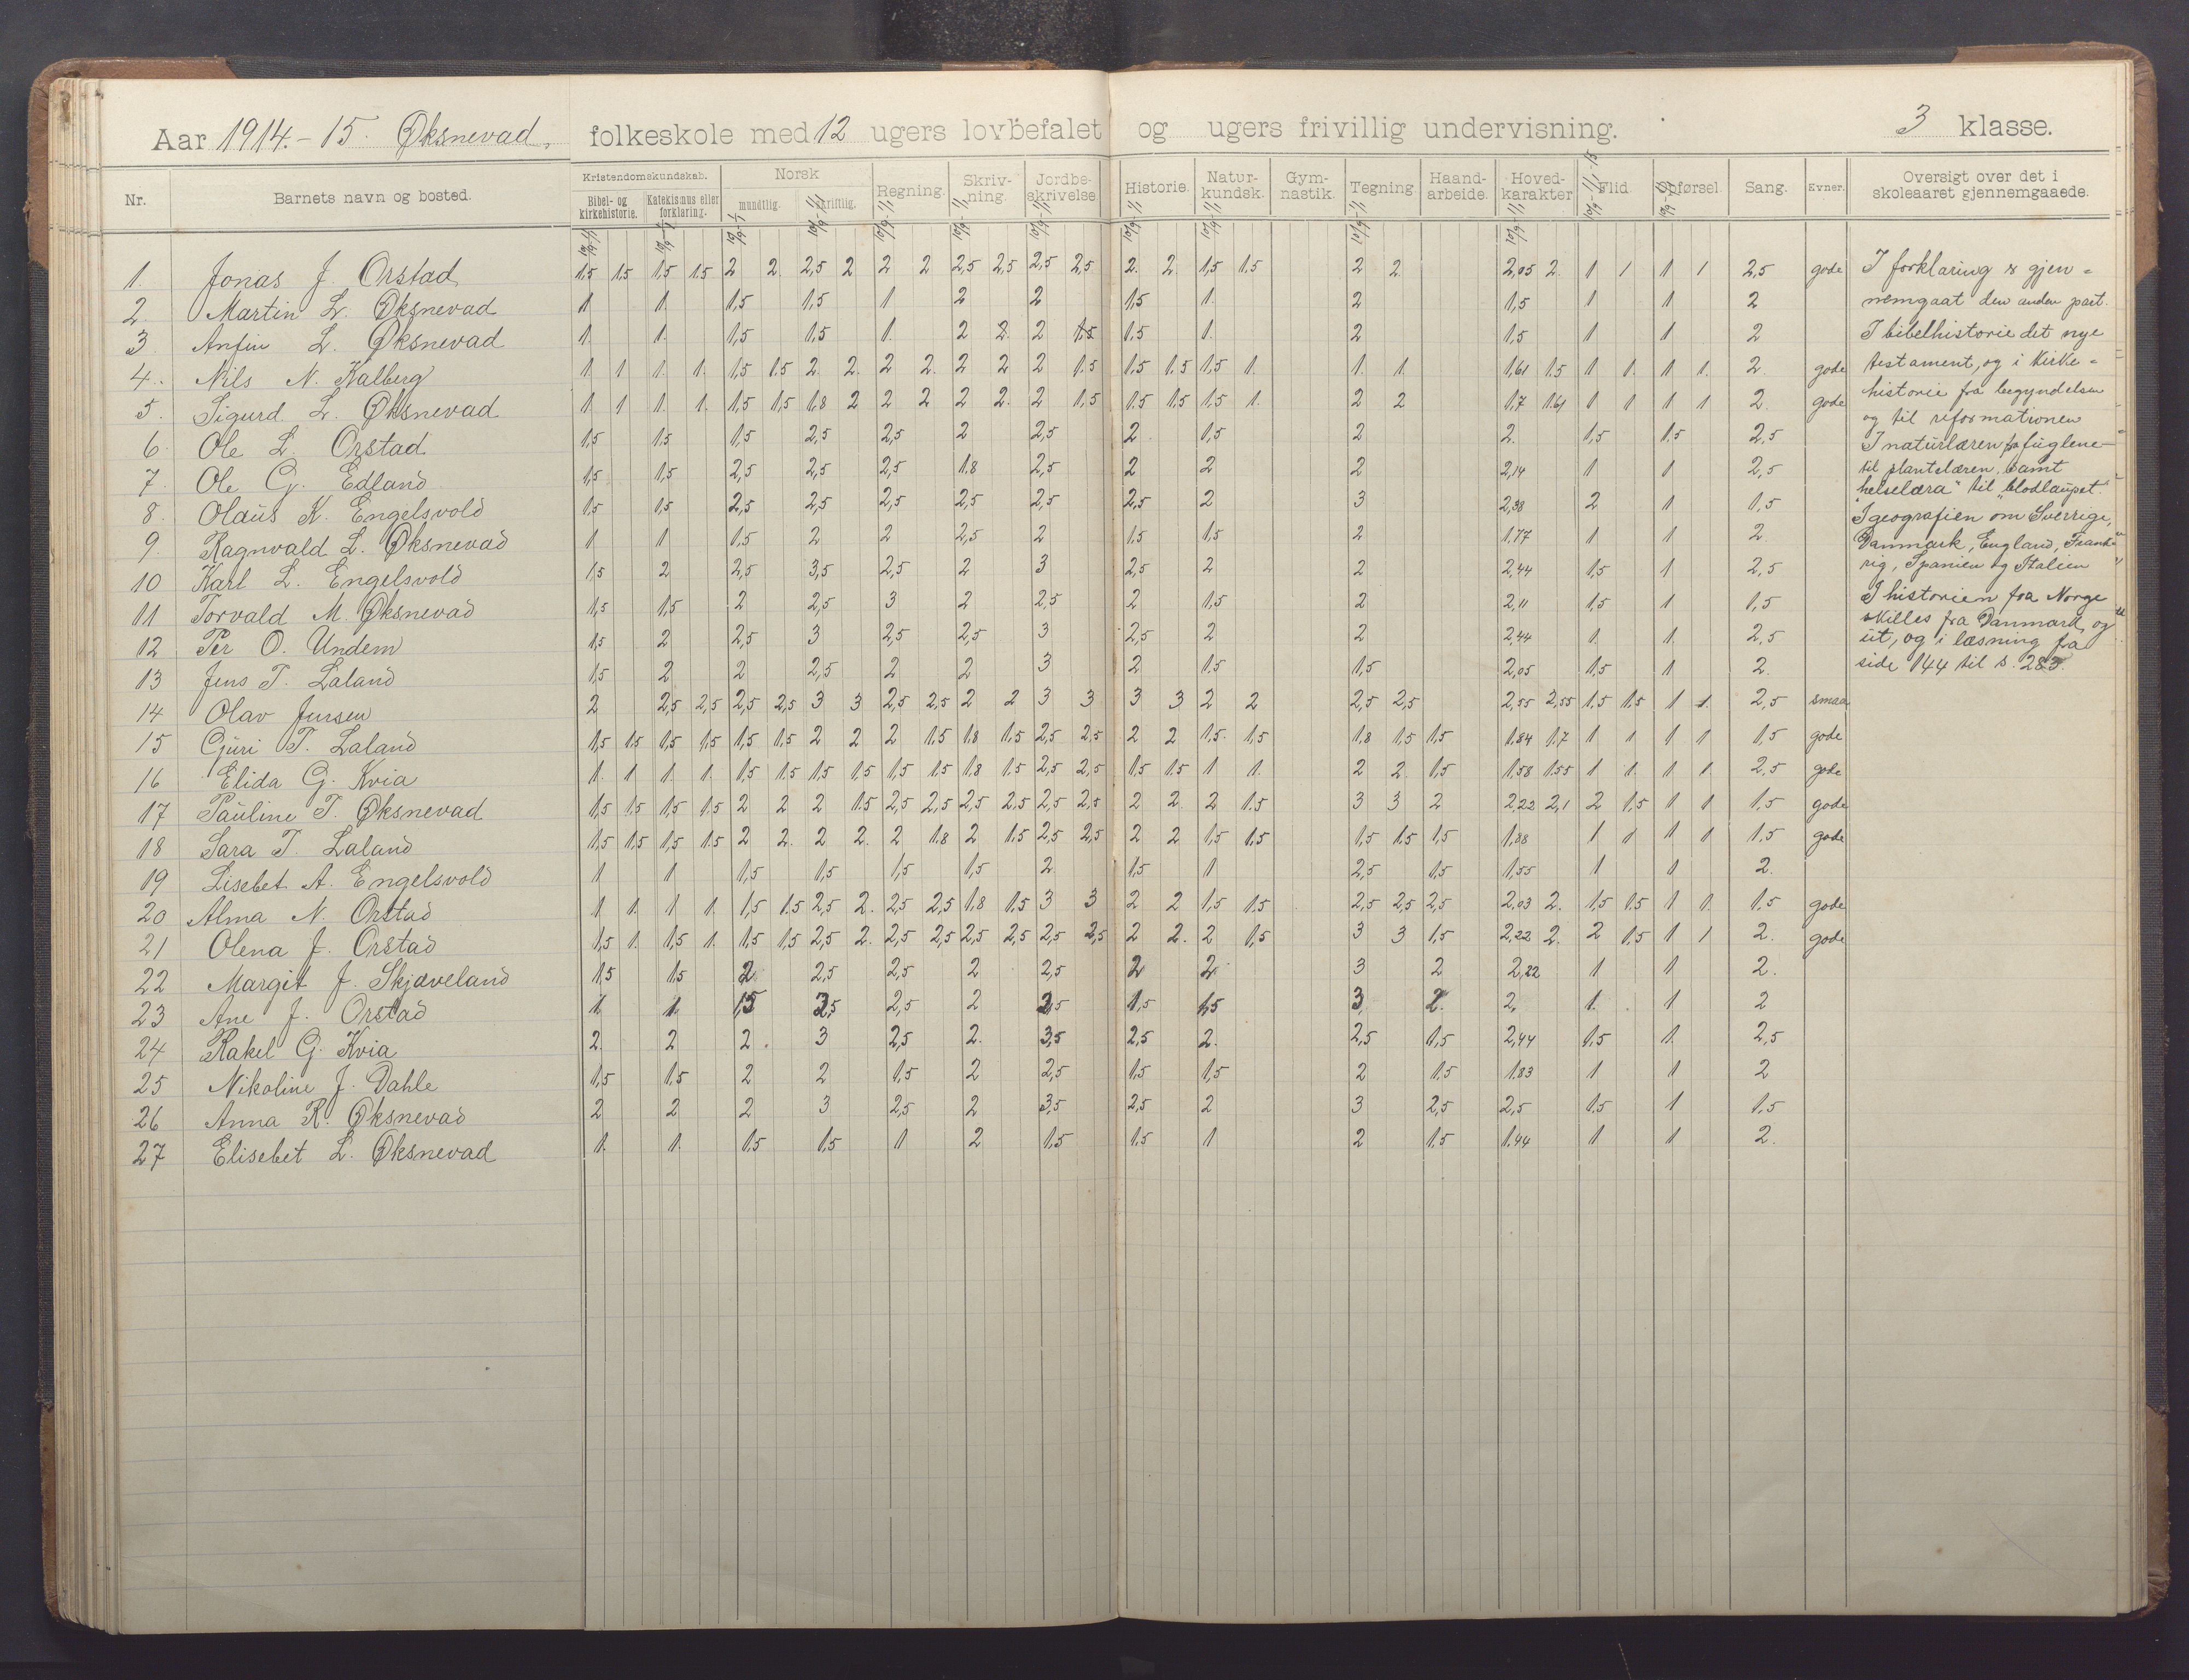 Aar 1914.-15. Øksnevad, folkeskole med 12 ugers lovbefalet og ugers frivillig undervisning. 3 klasse.
Nr. Barnets navn og bosted. Kristendomskundskab. Bibel- og kirkehistorie. Katekismus eller forklaring. Norsk mundtlig. skriftlig. Regning. Skriv-ning. Jordbe-skrivelse. Historie. Natur-kundsk. Gym-nastik. Tegning. Haand-arbeide. Hoved-karakter Flid Opførsel. Sang. Evner. Oversigt over det i skoleaaret gjennemgaaede.
1. Jonas J. Orstad 1,5 1,5 1,5 1,5 2 2. 2,5 2 2 2 2,5 2,5 2,5 2,5 2. 2. 1,5 1.5 2 2. 2,05 2. 1 1 1 1 2,5 gode
2. Martin L. Øksnevad 1 1. 1,5 1,5 1 2 2 1,5 1. 2 1,5 1 1 2
3 Anfin L. Øksnevad 1. 1. 1,5 1,5 1. 2 2. 2 1.5 1.5 1. 2 1,5 1 1 2
4. Nils N. Kalberg 1 1 1. 1. 1,5 1.5 2. 2. 2 2. 2 2 2 1.5 1.5 1.5 1,5 1. 1. 1. 1,61 1.5 1 1. 1 1. 2. gode
5. Sigurd L. Øksnevad 1 1 1. 1. 1,5 1,5 1,8 2 2 2 2 2. 2 1,5 1.5 1,5 1,5 1. 2 2 1,7 1.61 1 1 1 1 2. gode
6. Ole L. Orstad 1,5 1,5 1,5 2,5 2,5 2 2,5 2. 1,5 2 2. 1,5 1.5 2,5
7. Ole G. Edland 1,5 1,5 2,5 2,5 2,5 1.8 2,5 2 2 2 2,14 1 1 2,5
8. Olaus K. Engelsvold 1.5 1,5 2,5 2,5 2,5 2,5 2,5 2,5 2 3 2,38 2 1 1,5
9. Ragnvald L. Øksnevad 1 1 1,5 2 2 2,5 2 1.5 1,5 2 1,77 1 1 2.
10 Karl L. Engelsvold 1,5 2 2,5 3,5 2,5 2 3 2,5 2 2 2,44 1,5 1 2,5
11 Torvald M. Øksnevad 1,5 1,5 2 2,5 3 2 2,5 2 1,5 2 2,11 1,5 1 1,5
12 Per O. Undem 1,5 2 2,5 3 2,5 2,5 3 2,5 2 2 2,44 1. 1. 2,5
13 Jens T. Laland 1,5 2 2 2,5 2 2 3 2 1.5 1,5 2,05 1,5 1 2.
14 Olav Jursen 2 2,5 2,5 2,5 2,5 3 3 2,5 2,5 2 2 3 3 3 3 2 2 2,5 2,5 2,55 2,55 1,5 1,5 1 1. 2,5 smaa
15 Guri T. Laland 1,5 1.5 1,5 1,5 1,5 1,5 2 2 2 1.5 1.8 1.5 2,5 2,5 2 2 1.5. 1.5 1.8 1,5 1,5 1.84 1.7 1 1 1 1 1,5 gode
16 Elida G. Kvia 1. 1 1. 1. 1.5 1.5 1,5 1.5 1,5 1.5 1.8 1.5 2,5 2,5 1.5 1.5 1 1. 2 2. 1,5 1.58 1.55 1 1. 1 1. 2,5 gode
17 Pauline T. Øksnevad 1,5 1.5 1,5 1.5 2 2 2 1.5 2,5 2,5 2,5 2,5 2,5 2,5 2 2. 2 1.5 3 3 2 2,22 2,1 2 1,5 1 1 1,5 gode
18 Sara T. Laland 1,5 1,5 1,5 1.5 2 2. 2 2. 2 1.8 2 1.5 2,5 2,5 2 2 1,5 1,5 1,5 1.5 1,5 1,88 1 1 1 1 1,5 gode
19 Lisebet A. Engelsvold 1 1 1,5 1,5 1,5 1,5 2. 1,5 1 2,5 1,5 1,55 1 1 2.
20 Alma N. Orstad 1 1. 1 1. 1,5 1.5 2,5 2. 2,5 2,5 1.8 1.5 3 3 2 2 1,5 1.5 2,5 2,5 2,5 2,03 2. 1,5 1.5 1 1. 1.5 gode
21 Olena J. Orstad 1,5 1. 1,5 1. 1.5 1,5 2,5 2. 2,5 2,5 2,5 2,5 2,5 2,5 2 2. 2 1,5 3 3 1,5 2,22 2. 2 1,5 1 1 2. gode
22 Margit J. Skjæveland 1.5 1.5 2 2,5 2,5 2 2,5 2 2. 3 2 2,22 1 1 2.
23 Ane J. Orstad 1. 1. 1,5 3,5 2,5 2 3,5 1,5 1,5 3. 2. 2. 1. 1 2
24 Rakel G. Kvia 2. 2 2. 3 2,5 2. 3,5 2,5 2. 2,5 1,5 2,44 1,5 1. 2,5
25 Nikoline J. Dahle 1,5 1,5 2 2 1.5 2 2,5 1.5 1,5 2 1.5 1.83 1 1 2
26 Anna R. Øksnevad 2 2 2 3 2,5 2 3,5 2,5 2 3 2,5 2,5 1.5 1 1,5
27 Elisebet L. Øksnevad 1. 1. 1,5 1,5 1 2 1,5 1.5 1 2 1.5 1,44 1 1 2.
I forklaring er gjen=
nemgaat den anden part.
I bibelhistorie det nye
testament, og i kirke=
historie fra begyndelsen
og til reformationen
I naturlæren fra fuglene
til plantelæren, samt
"helselæra" til "blodlaupet".
I geografien om Sverrige,
Danmark, England, Frank=
rig, Spanien og Italien
I historien fra Norge
skilles fra Danmark og
ut, og i læsning fra
side 144 til s. 283.